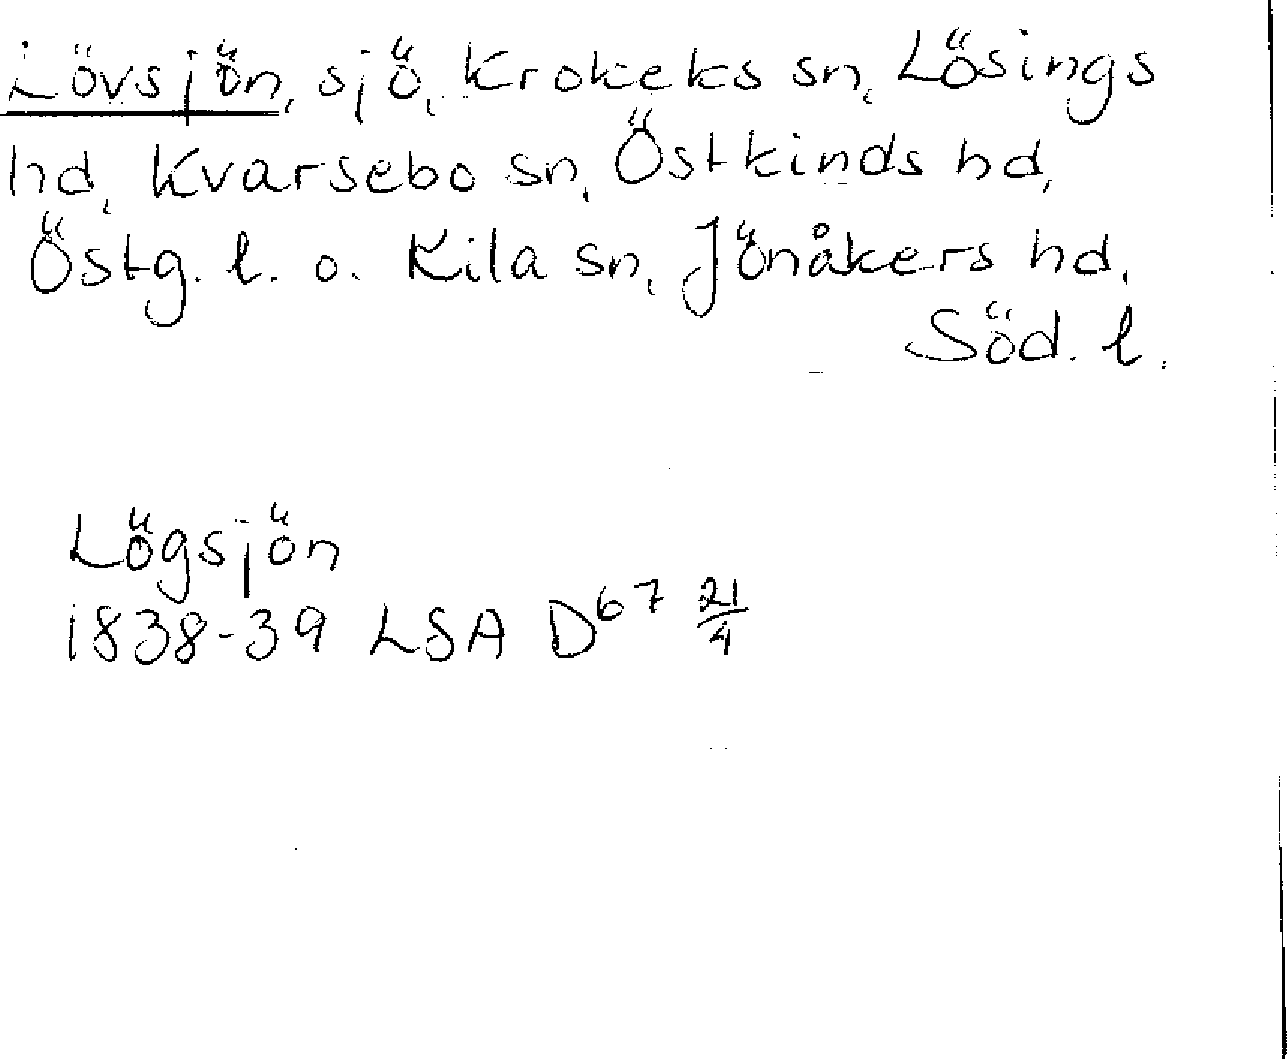 Lövsjön, sjö, Krokeks sn, Lösings
hd, Kvarsebo sn, Östkinds hd,
Östg. l. o. Kila sn, Jönåkers hd,
Söd. l.
Lögsjön
1838-39 LSA D67 21/4